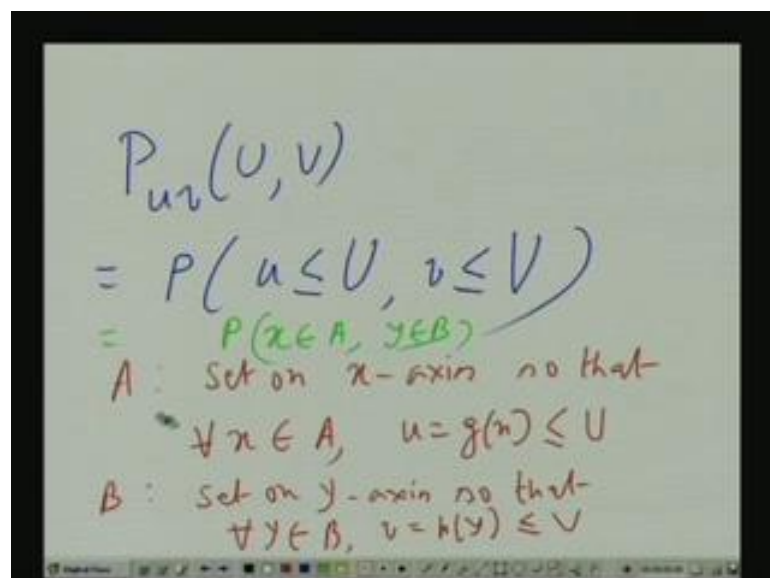 P_{uv}(U, V)
= P( u ≤ U, v ≤ V )
= P(x ∈ A, y ∈ B)
A : set on x-axis so that
∀ x ∈ A, u = g(x) ≤ U
B : set on y-axis so that
∀ y ∈ B, v = h(y) ≤ V